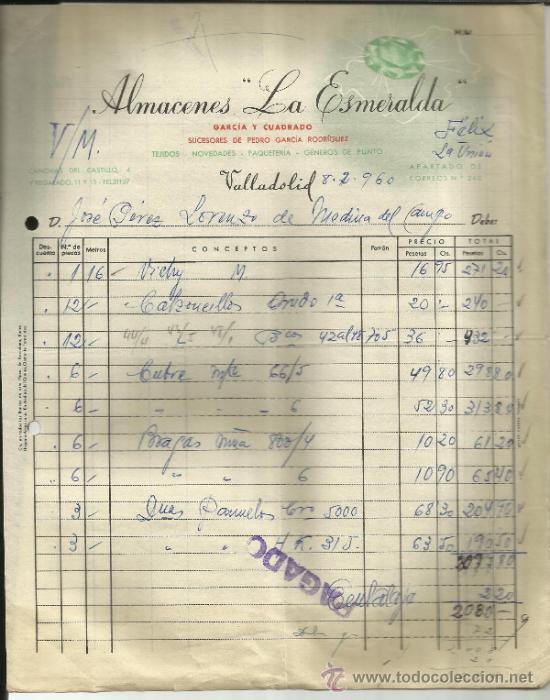 Almacenes "La Esmeralda"
GARCÍA Y CUADRADO
SUCESORES DE PEDRO GARCÍA RODRÍGUEZ
TEJIDOS - NOVEDADES - PAQUETERÍA - GÉNEROS DE PUNTO
V/M.
CÁNOVAS DEL CASTILLO, 4
Y REGALADO, 11 Y 13 - TEL.
Félix
La Unión
APARTADO DE
CORREOS N.º
Valladolid 8-2-960
D. José Pérez Lorenzo de Medina del Campo Debe:
Descuento N.º de piezas Metros CONCEPTOS Patrón PRECIO Pesetas Cts. TOTAL Pesetas Cts.
1 16 - Vichy M 16 95 271 20
12 - Calzoncillos 1ª 20 - 240 -
12 - 36 - 432 -
6 - Cubre 66/5 49 80 298 80
6 - " " 6 52 30 313 80
6 - Bragas niña 800/4 10 20 61 20
6 - " " 6 10 90 65 40
3 - Pañuelos 5000 68 30 204 90
3 - " " 315 63 50 190 50
2097 80
PAGADO
2 20
2080 -
www.todocoleccion.net